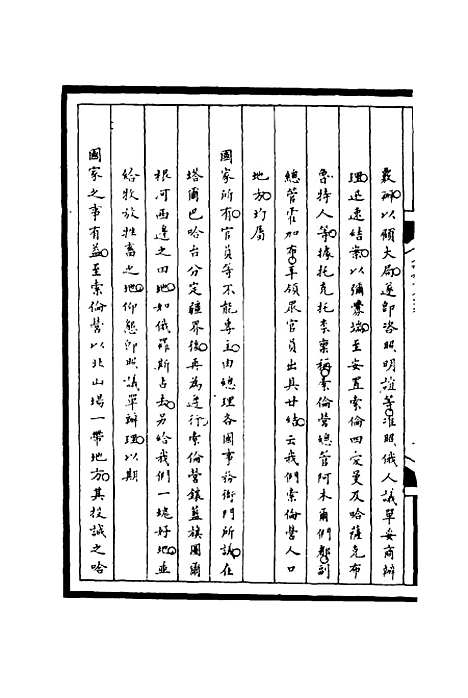 襄辦以顧大局遂即咨照明誼等准照俄人議單妥商辦
理迅速結案以彌釁端至安置索倫四愛曼及哈薩克布
魯特人等據托克托李稟稱索倫營總管阿木爾們都副
總管霍加布車領隊官員出具甘結云我們索倫營人口
地方均屬
國家所有官員等不能專主由總理各國事務衙門所議在
塔爾巴哈台分定疆界後再為遷行索倫營鑲藍旗圖爾
根河西邊之田地如俄羅斯占去另給我們一塊好地並
給牧放牲畜之地仰懇即照議單辦理以期
國家之事有益至索倫營以北山場一帶地方其投誠之哈